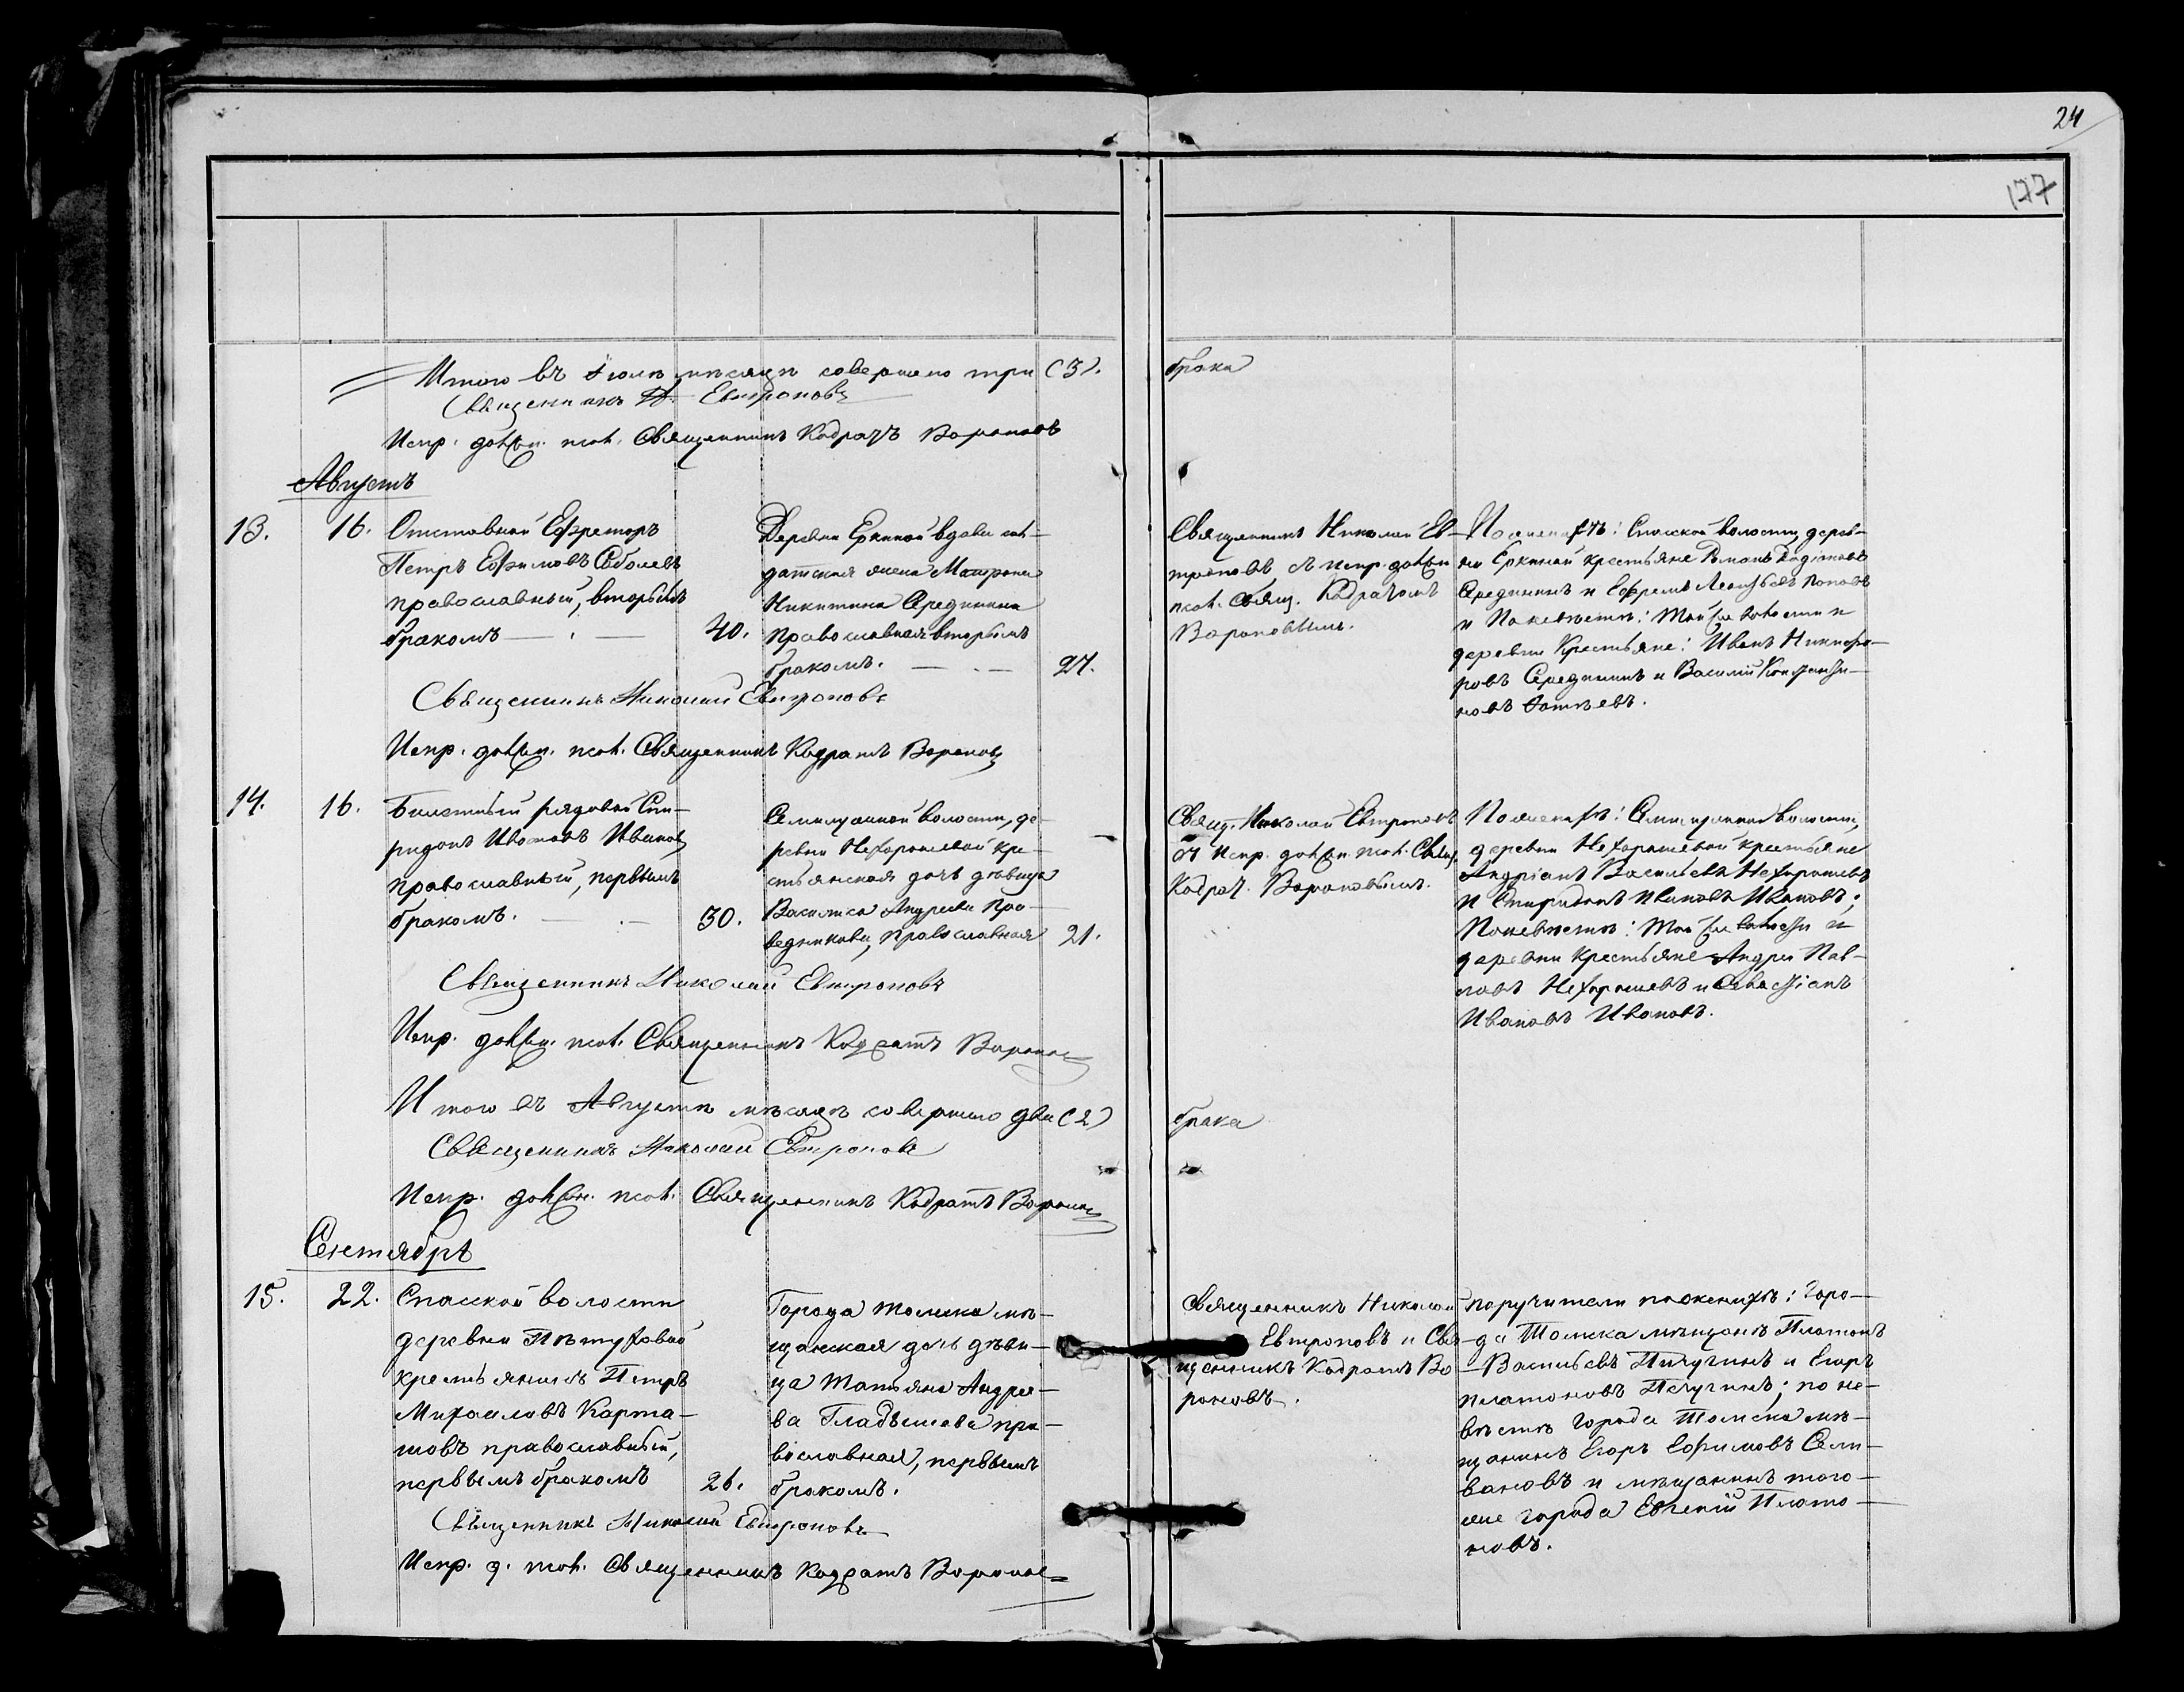 24
177
Итого въ Іюлѣ мѣсяцѣ совершено три (3).
брака
Священникъ Н. Евтроповъ
Испр. должн. псал. Священникъ Кодратъ Вороновъ
Августъ
13.
16.
Отставной Ефрейторъ
Петръ Ефимовъ Соболевъ
православный, вторымъ
бракомъ
40.
Деревни Еркиной вдова сол-
датская жена Матрона
Никитина Середкина
православная вторымъ
бракомъ.
27.
Священникъ Николай Ев-
троповъ съ испр. должн.
псал. Свящ. Кодратомъ
Вороновымъ.
По женихѣ: Спасской волости дерев-
ни Еркиной крестьяне Романъ Родіоновъ
Середкинъ и Ефремъ Леонтьевъ Поповъ
и По невѣстѣ: Той же волости и
деревни Крестьяне: Иванъ Никифо-
ровъ Середкинъ и Василій Константи-
новъ
Священникъ Николай Евтроповъ
Испр. должн. псал. Священникъ Кодратъ Вороновъ
14.
16.
Билетный рядовой Спи-
ридонъ Ивановъ Ивановъ
православный, первымъ
бракомъ.
30.
Семилужной волости, де-
ревни Нехорошевой кре-
стьянская дочь дѣвица
Василиса Андреева Про-
водникова, православная
21.
Свящ. Николай Евтроповъ
съ Испр. должн. псал. Свящ.
Кодрат. Вороновымъ.
По женихѣ: Семилужной волости,
деревни Нехорошевой крестьяне
Андріанъ Васильевъ Нехорошевъ
и Спиридонъ Ивановъ Ивановъ;
По невѣстѣ: Той же волости и
деревни крестьяне Андрей Пав-
ловъ Нехорошевъ и Севастіанъ
Ивановъ Ивановъ.
Священникъ Николай Евтроповъ
Испр. должн. псал. Священникъ Кодратъ Вороновъ
Итого въ Августѣ мѣсяцѣ совершено два (2)
брака
Священникъ Николай Евтроповъ
Испр. должн. псал. Священникъ Кодратъ Вороновъ
Сентябрь
15.
22.
Спасской волости
деревни Пѣтуховой
крестьянинъ Петръ
Михайловъ Карта-
шовъ православный,
первымъ бракомъ
26.
Города Томска мѣ-
щанская дочь дѣви-
ца Татьяна Андрее-
ва Гладышева пра-
вославная, первымъ
бракомъ.
Священникъ Николай
Евтроповъ и Свя-
щенникъ Кодратъ Во-
роновъ.
Поручители по женихѣ: Горо-
да Томска мѣщане Платонъ
Васильевъ Пичугинъ и Егоръ
Платоновъ Пичугинъ; по не-
вѣстѣ города Томска мѣ-
щанинъ Егоръ Ефимовъ Сели-
вановъ и мѣщанинъ того-
же города Евгеній Плато-
новъ.
Священникъ Николай Евтроповъ
Испр. д. псал. Священникъ Кодратъ Вороновъ